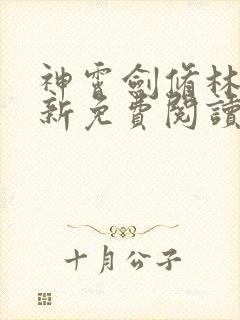 神霄劍脩林
新免費閱讀
十月公子